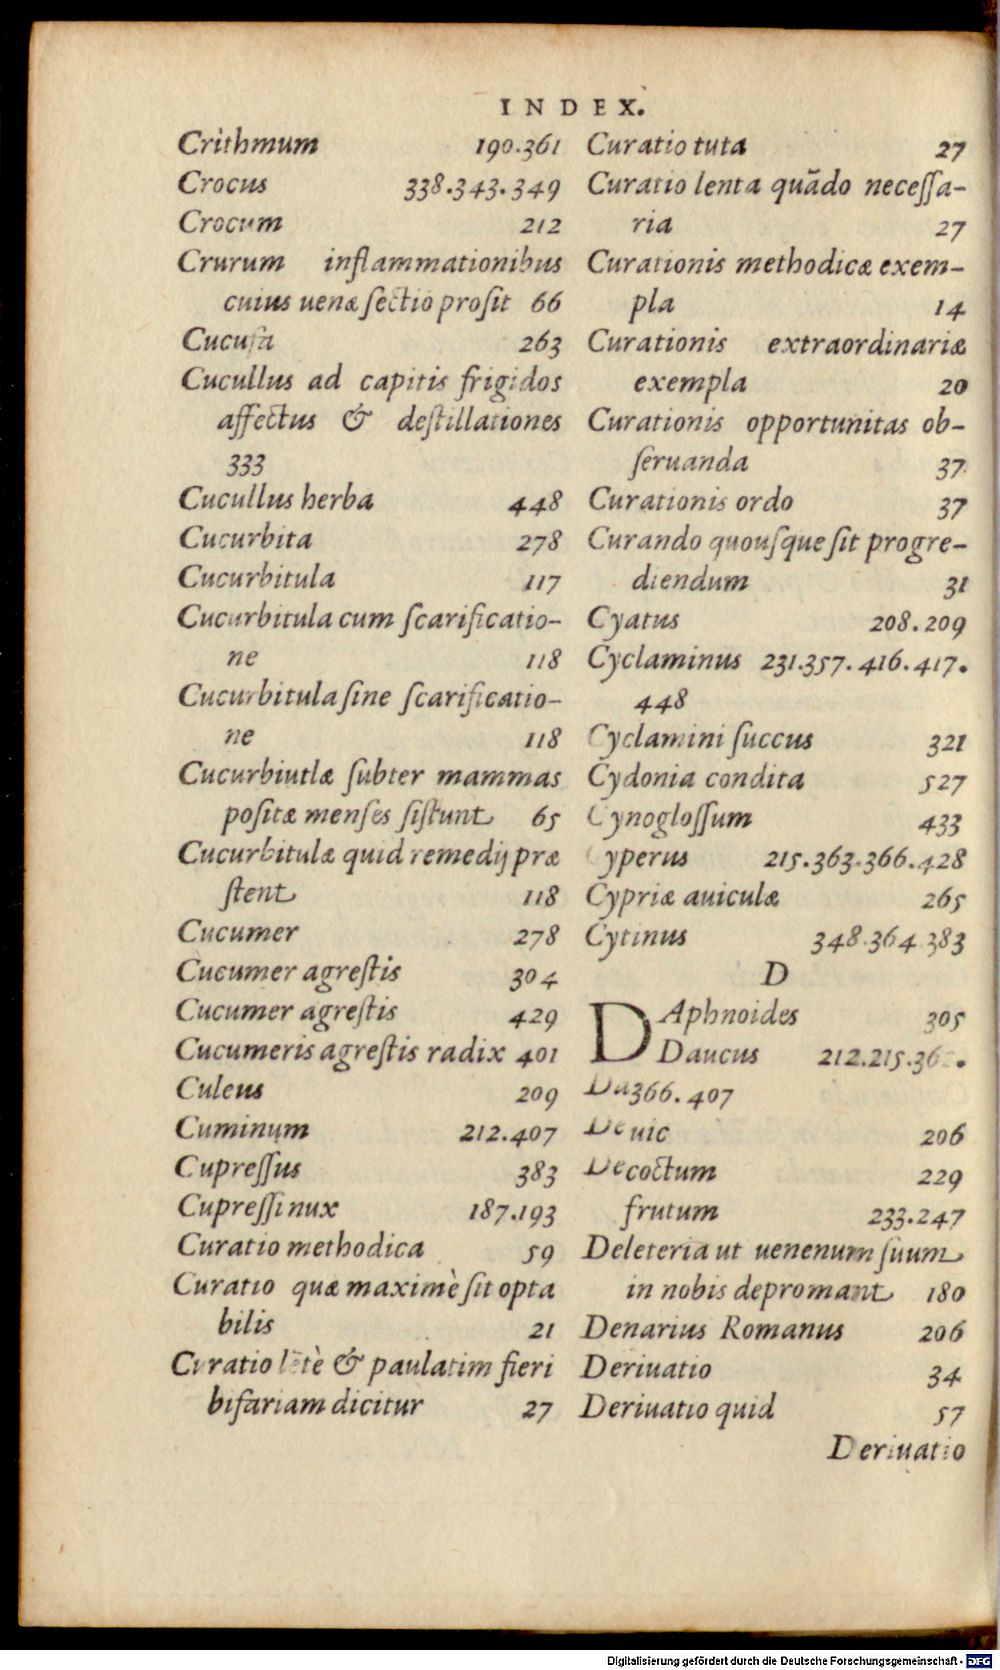 INDEX.
Crithmum 190.361
Crocus 338.343.349
Crocum 212
Crurum inflammationibus
cuius uenæ ſectio proſit 66
Cucuſa 263
Cucullus ad capitis frigidos
affectus & deſtillationes
333
Cucullus herba 448
Cucurbita 278
Cucurbitula 117
Cucurbitula cum ſcarificatio-
ne 118
Cucurbitula ſine ſcarificatio-
ne 118
Cucurbiutlæ ſubter mammas
poſitæ menſes ſiſtunt 65
Cucurbitulæ quid remedij præ
ſtent 118
Cucumer 278
Cucumer agreſtis 304
Cucumer agreſtis 429
Cucumeris agreſtis radix 401
Culeus 209
Cuminum 212.407
Cupreſſus 383
Cupreſſi nux 187.193
Curatio methodica 59
Curatio quæ maximè ſit opta
bilis 21
Curatio lētè & paulatim fieri
bifariam dicitur 27
Curatio tuta 27
Curatio lenta quādo neceſſa-
ria 27
Curationis methodicæ exem-
pla 14
Curationis extraordinariæ
exempla 20
Curationis opportunitas ob-
ſeruanda 37
Curationis ordo 37
Curando quouſque ſit progre-
diendum 31
Cyatus 208.209
Cyclaminus 231.357.416.417.
448
Cyclamini ſuccus 321
Cydonia condita 527
Cynogloſſum 433
Cyperus 215.363.366.428
Cypriæ auiculæ 265
Cytinus 348.364.383
D
DAphnoides 305
Daucus 212.215.
Da366.407
De uic 206
Decoctum 229
frutum 233.247
Deleteria ut uenenum ſuum
in nobis depromant 180
Denarius Romanus 206
Deriuatio 34
Deriuatio quid 57
Deriuatio
Digitalisierung gefördert durch die Deutsche Forschungsgemeinschaft - DFG